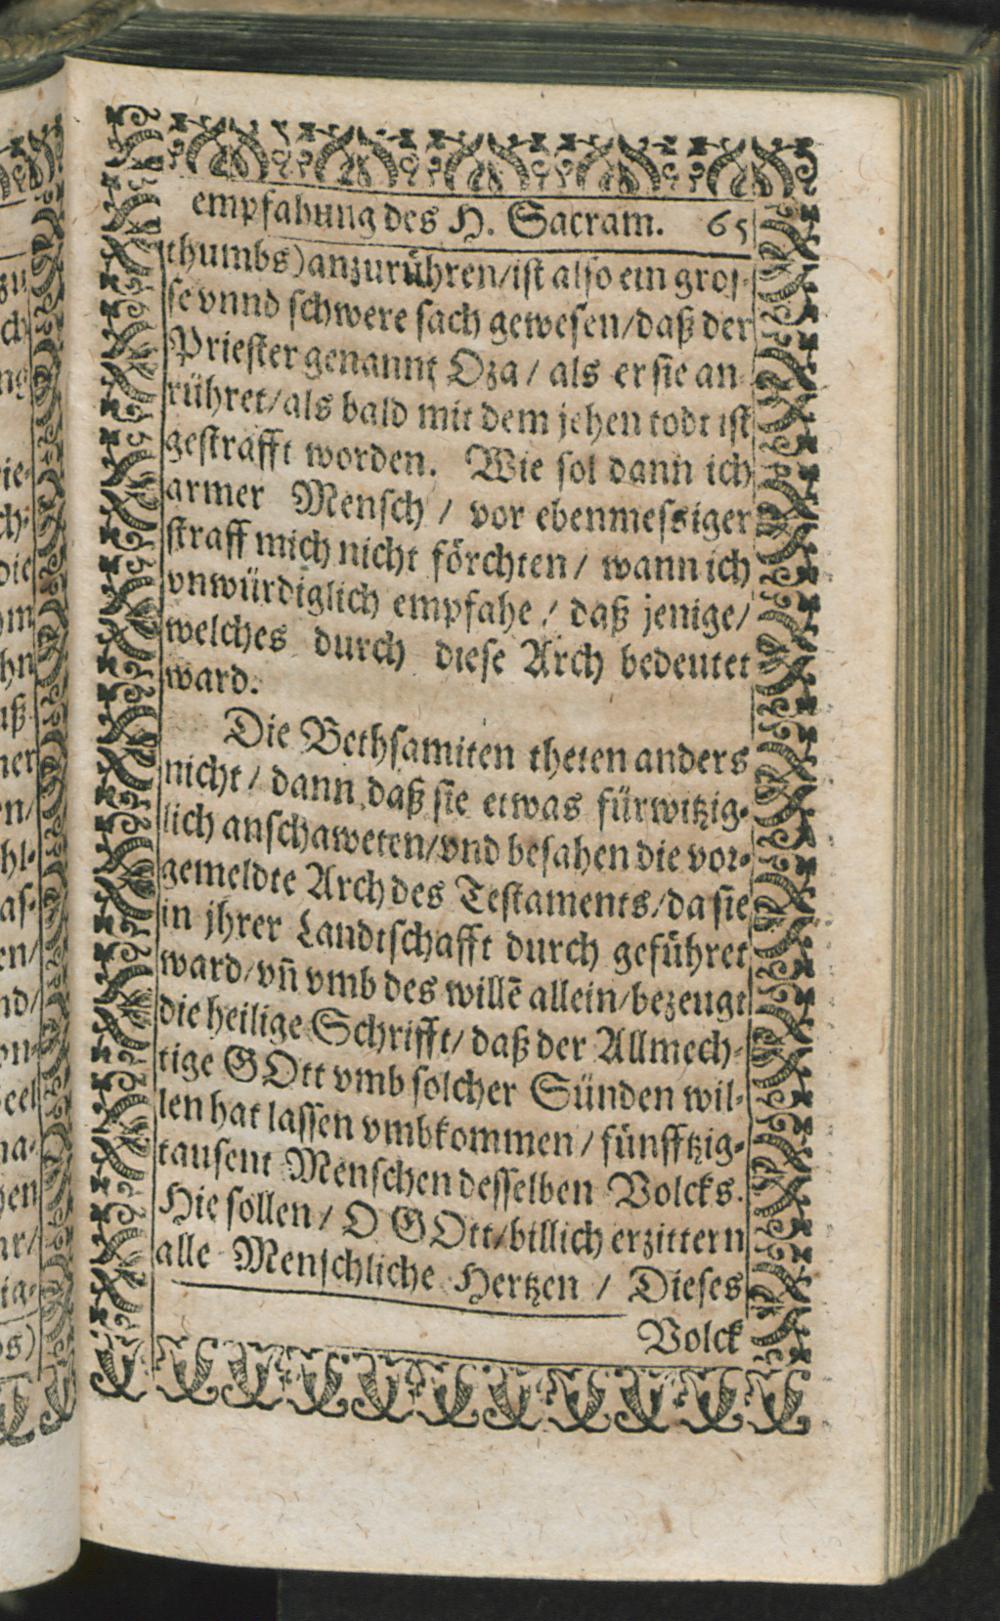 empfahung des H. Sacram. 65
thumbs) anzurühren/ist also ein gros-
se vnnd schwere sach gewesen/daß der
Priester genannt Oza / als er sie an-
rühret/als bald mit dem jehen todt ist
gestrafft worden. Wie sol dann ich
armer Mensch / vor ebenmessiger
straff mich nicht förchten / wann ich
vnwürdiglich empfahe / daß jenige/
welches durch diese Arch bedeutet
ward.
Die Bethsamiten theten anders
nicht / dann daß sie etwas fürwitzig-
lich anschaweten/vnd besahen die vor-
gemeldte Arch des Testaments/da sie
in jhrer Landtschafft durch geführet
ward/vñ vmb des willẽ allein/bezeugt
die heilige Schrifft/ daß der Allmech-
tige GOtt vmb solcher Sünden wil-
len hat lassen vmbkommen / fünfftzig-
tausent Menschen desselben Volcks.
Hie sollen / O GOtt/billich erzittern
alle Menschliche Hertzen / Dieses
Volck